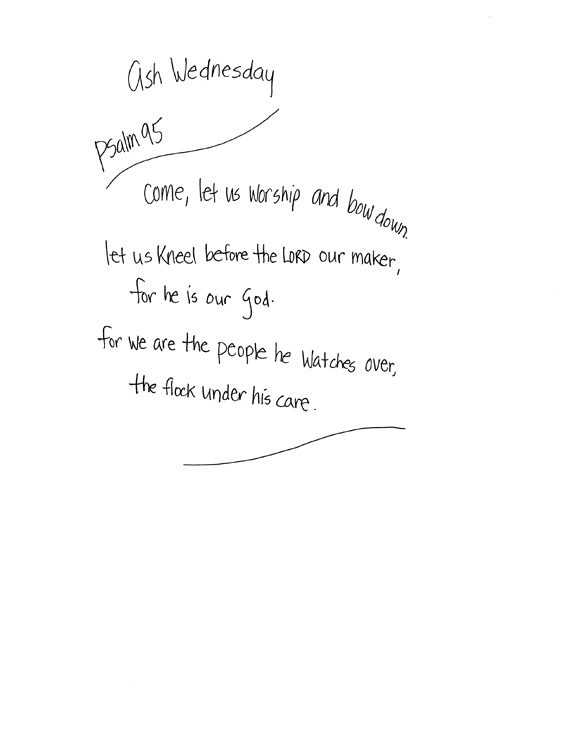 Ash Wednesday
Psalm 95
Come, let us worship and bow down.
let us Kneel before the LORD our maker,
for he is our God.
for we are the people he watches over,
the flock under his care.